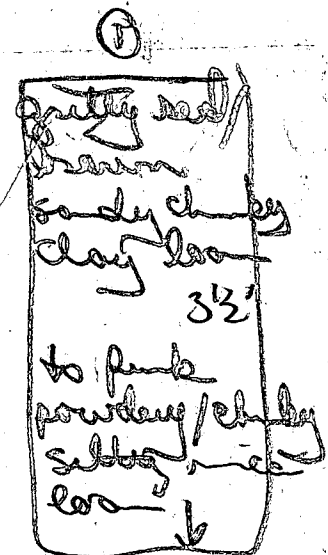 ①
gritty red/
brown
sandy chunky
clay loam
3½'
to pink
powdery/chunky
silty mica
loam